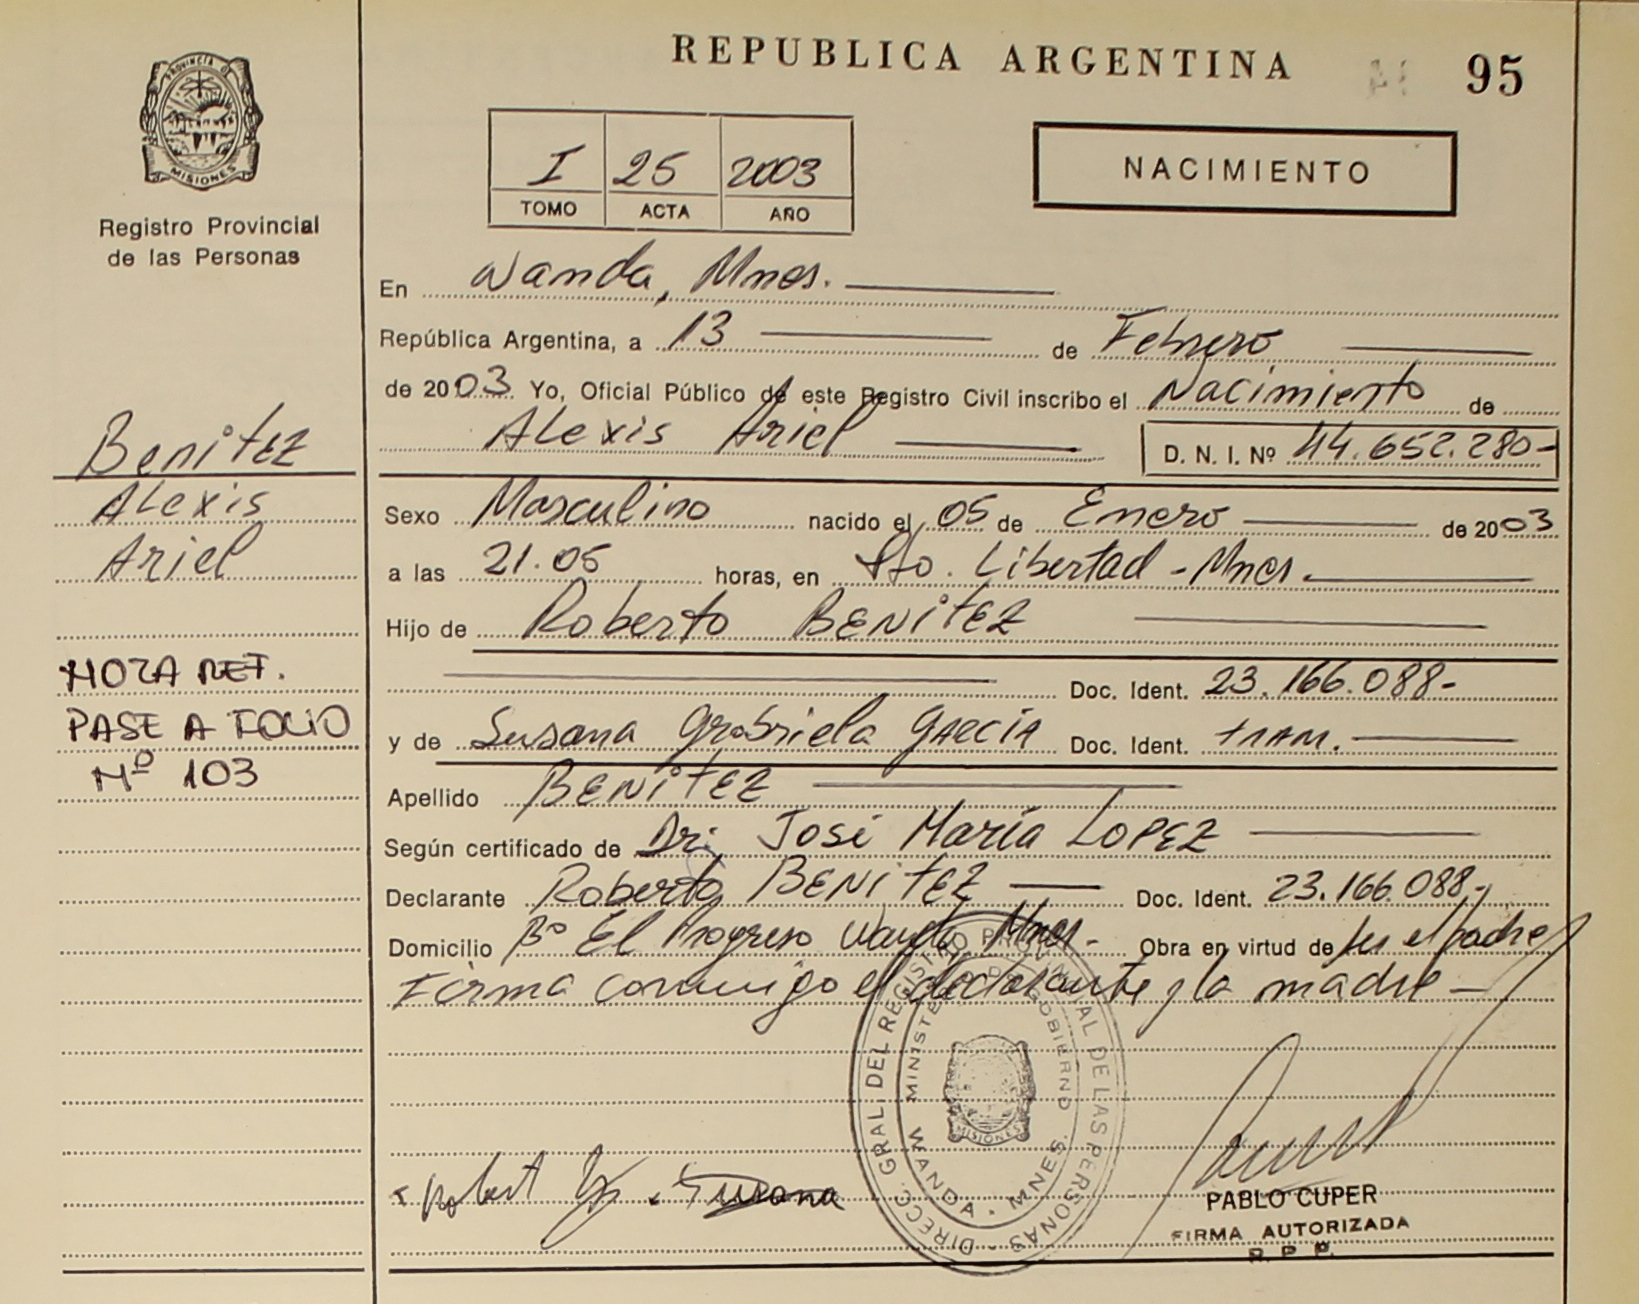 REPUBLICA ARGENTINA
95
PROVINCIA DE
MISIONES
Registro Provincial
de las Personas
I 25 2003
TOMO ACTA AÑO
NACIMIENTO
En Wanda, Mnes.
República Argentina, a 13 de Febrero
de 2003 Yo, Oficial Público de este Registro Civil inscribo el Nacimiento de
Alexis Ariel D. N. I. Nº 44.652.280-
Benitez
Alexis
Ariel
Sexo Masculino nacido el 05 de Enero de 2003
a las 21.05 horas, en Pto. Libertad - Mnes.
Hijo de Roberto BENITEZ
Doc. Ident. 23.166.088-
y de Susana Gabriela GARCIA Doc. Ident. tram.
NOTA REF.
PASE A FOLIO
Nº 103
Apellido BENITEZ
Según certificado de Dr. José María LOPEZ
Declarante Roberto BENITEZ Doc. Ident. 23.166.088-
Domicilio Bº El Progreso Wanda Mnes. - Obra en virtud de ser el padre
Firma conmigo el declarante y la madre -
DIRECC. GRAL. DEL REGISTRO PROVINCIAL DE LAS PERSONAS
MINISTERIO DE GOBIERNO
WANDA - MNES.
MISIONES
Robert Susana
PABLO CUPER
FIRMA AUTORIZADA
R. P. P.